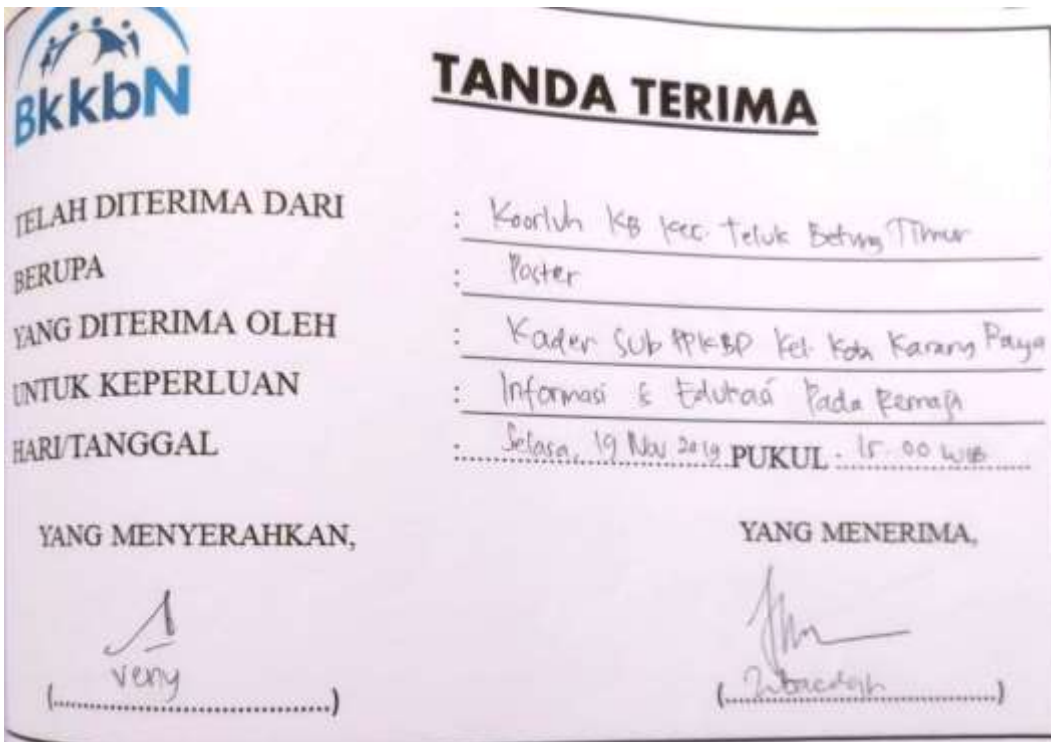 BkkbN
TANDA TERIMA
TELAH DITERIMA DARI : Koorluh KB Kec. Teluk Betung Timur
BERUPA : Poster
YANG DITERIMA OLEH : Kader Sub PPKBD Kel. Kota Karang Raya
UNTUK KEPERLUAN : Informasi & Edukasi Pada Remaja
HARI/TANGGAL : Selasa, 19 Nov 2019 PUKUL : 15.00 WIB
YANG MENYERAHKAN, YANG MENERIMA,
(veny) (Zubaedah)